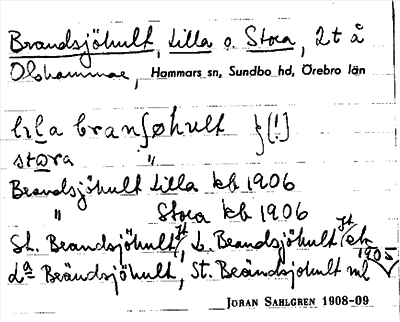 Brandsjöhult, Lilla o. Stora, 2 t å
Olshammar, Hammars sn, Sundbo hd, Örebro län
lıla branʃøhult } [!]
stωra "
Brandsjöhult Lilla kb 1906
" Stora kb 1906
St. Brandsjöhult, L. Brandsjöhult jb 1905
da Brändsjöhult, St. Brändsjohult ml
JÖRAN SAHLGREN 1908-09